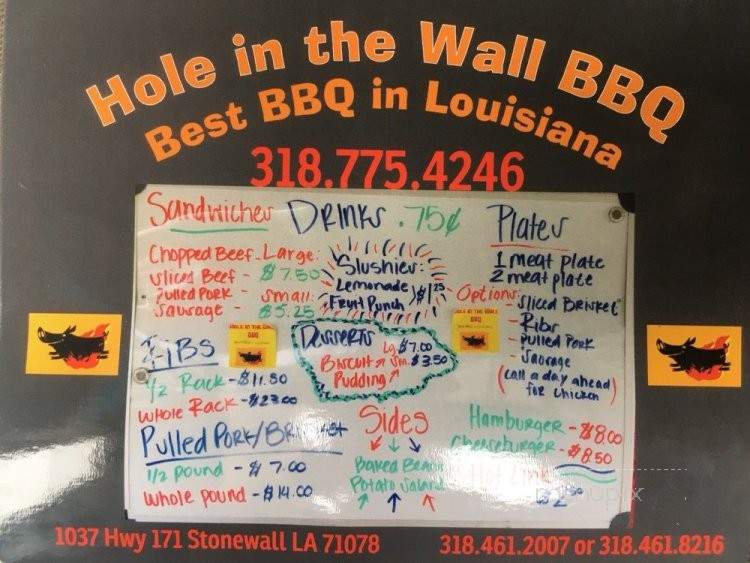 Hole in the Wall BBQ
Best BBQ in Louisiana
318.775.4246
Sandwiches
Chopped Beef - Large:
Sliced Beef - $7.50
Pulled Pork - Small:
Sausage - $5.25
DRINKS .75¢
Slushies:
Lemonade
Fruit Punch
$1.25
Plates
1 meat plate
2 meat plate
Options: - Sliced Brisket
- Ribs
- Pulled Pork
- Sausage
(Call a day ahead
for chicken)
HOLE IN THE WALL
BBQ
Desserts
Lg. $7.00
Biscuit Sm. $3.50
Pudding
RIBS
1/2 Rack - $11.50
Whole Rack - $23.00
Pulled Pork/Brisket
1/2 pound - $7.00
Whole pound - $14.00
Sides
Baked Beans
Potato Salad
Hamburger - $8.00
Cheeseburger - $8.50
Hot Link
$2.50
1037 Hwy 171 Stonewall LA 71078
318.461.2007 or 318.461.8216